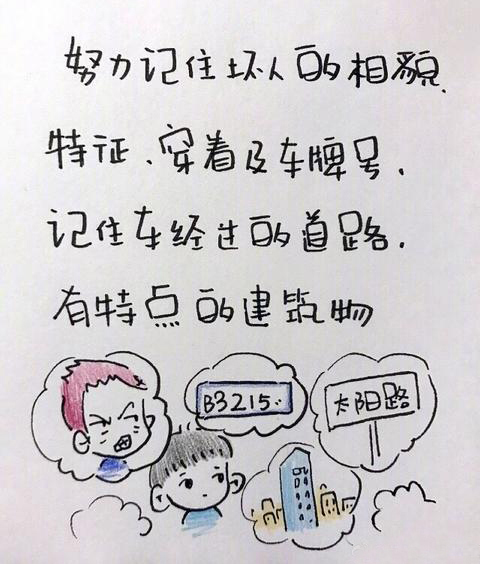 努力记住坏人的相貌、
特征、穿着及车牌号，
记住车经过的道路，
有特点的建筑物
B3215..
太阳路